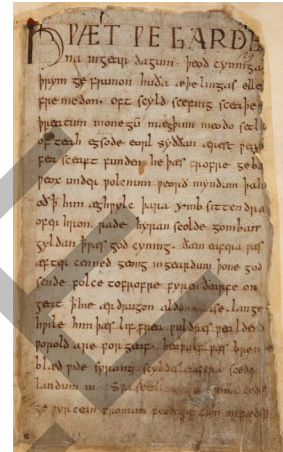 HǷÆT ǷE GARDE
na ingear dagum. þeod cyninga
þrym ge frunon huða æþelingas elle
fre medon. oft scyld scefing sceaþe
þreatum monegū mægþum meodo setl
of teah egsode eorl syððan ærest ƿear
fea sceaft funden he þæs frofre geba
ƿeox under ƿolcnum ƿeorð myndum þah
oð þ him æghƿylc þara ymb sittendra
ofer hron rade hyran scolde gomban
gyldan þ ƿæs god cyning. ðæm eafera ƿæs
æfter cenned geong ingeardum þone god
sende folce tofrofre fyren ðearfe on
geat þ hie ær drugon aldor ase. lange
hƿile him þæs lif frea ƿuldres ƿealdend
ƿorold are for geaf. beoƿulf ƿæs breme
blæd ƿide sprang scyldes eafera scede
landum in. Sƿa guma gode
ge ƿyrcean fromum feoh giftum